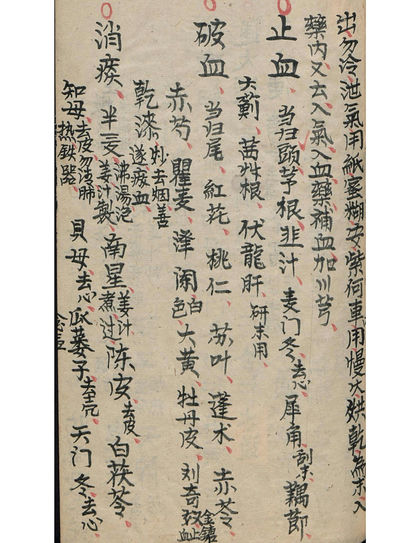 出勿冷泄氣用紙蜜糊安紫何車用慢火烘乾為末入
藥內又去入氣入血藥補血加川芎
止血 当归頭芋根韭汁麦门冬去心犀角剉末藕節
大薊茜艸根伏龍肝研末用
破血 当归尾紅花桃仁苏叶蓬术赤苓
赤芍瞿麦泽闲白色大黄牡丹皮刘寄奴金鎗止血
乾漆炒去烟善遂瘀血
消痰 半夏姜汁製沸湯泡南星姜汁煮过陈皮去皮白茯苓
知母去皮勿清肺热鉄器貝母去心瓜蒌子去壳天门冬去心